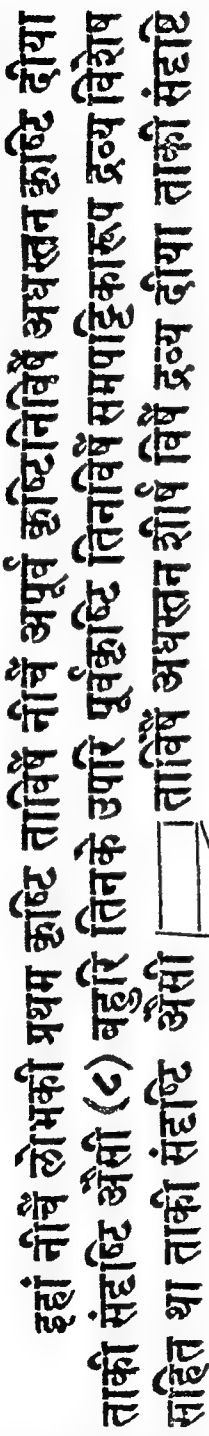 इहां नीचैं लोभकी प्रथम कृष्टि ताविषैं नीचैं अपूर्व कृष्टिनिविषैं अधस्तन कृष्टि दीया
ताकी संदृष्टि औसी (८) बहुरि तिनके उपरि पूर्वकृष्टि तिनविषैं समपट्टिकारूप द्रव्य विशेष
सहित था ताकी संदृष्टि औसी ताविषैं अधस्तन शीर्ष विषैं द्रव्य दीया ताकी संदृष्टि